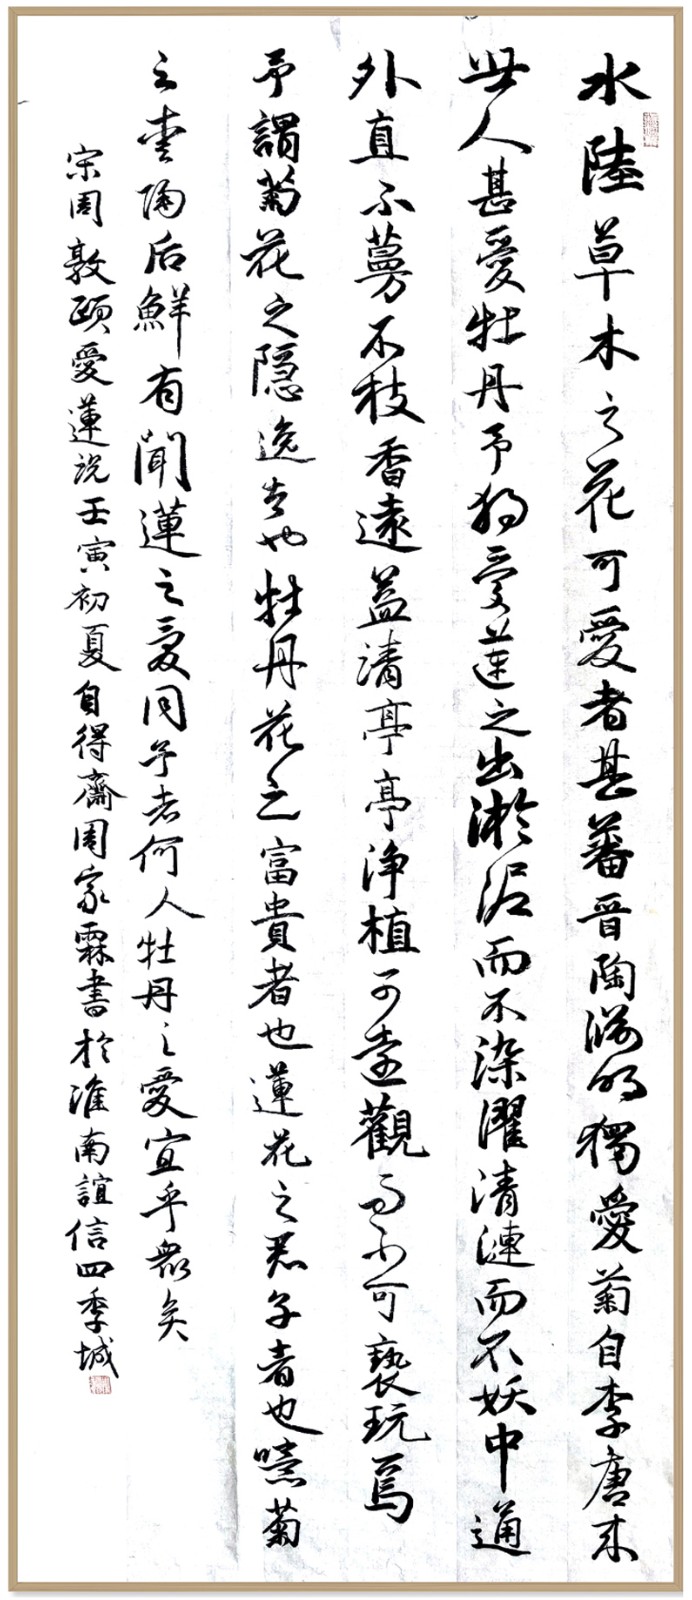 水陸草木之花可愛者甚蕃晉陶淵明獨愛菊自李唐来
世人甚愛牡丹予独愛莲之出淤泥而不染濯清漣而不妖中通
外直不蔓不枝香遠益清亭亭浄植可遠觀而不可褻玩焉
予謂菊花之隐逸者也牡丹花之富貴者也蓮花之君子者也噫菊
之愛陶后鮮有聞蓮之愛同予者何人牡丹之愛宜乎衆矣
宋周敦頤愛蓮说壬寅初夏自得齋周家霖書於淮南誼信四季城